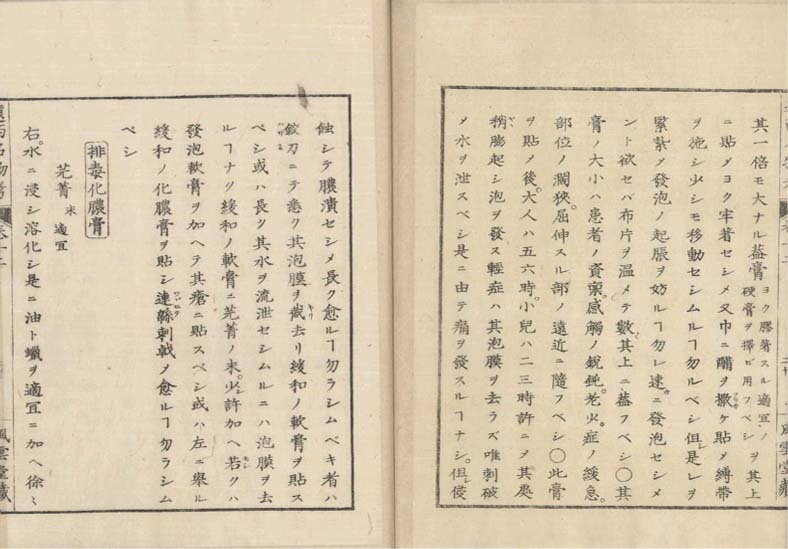 其一倍モ大ナル蓋膏ヨク膠著スル適宜ノ硬膏ヲ擇ビ用フベシヲ其上
ニ貼メヨク牢着セシメ又巾ニ醋ヲ撒ケ貼メ縛帶
ヲ施シ少シモ移動セシムルヿ勿ルベシ但シ是レヲ
緊紮メ發泡ノ起脹ヲ妨ルヿ勿レ速ニ發泡セシメ
ント欲セバ布片ヲ温メテ數其上ニ蓋フベシ〇其
膏ノ大小ハ患者ノ資稟。感觸ノ銳鈍。老少。症ノ緩急。
部位ノ濶狹。屈伸スル部ノ遠近ニ隨フベシ〇此膏
ヲ貼メ後。大人ハ五六時。小兒ハ二三時許ニメ其處
稍膨起シ泡ヲ發ス輕症ハ其泡膜ヲ去ラズ唯刺破
メ水ヲ泄スベシ是ニ由テ痛ヲ發スルヿナシ。但シ侵
二十
風雲堂藏
遠西名物考
卷十二
蝕シテ膿潰セシメ長ク愈ルヿ勿ラシムベキ者ハ
鉸刀ニテ悉ク其泡膜ヲ截去リ緩和ノ軟膏ヲ貼ス
ベシ或ハ長ク其水ヲ流泄セシムルニハ泡膜ヲ去
ルヿナク緩和ノ軟膏ニ芫菁ノ末。少許加ヘ若クハ
發泡軟膏ヲ加ヘテ其瘡ニ貼スベシ或ハ左ニ舉ル
緩和ノ化膿膏ヲ貼シ連緜刺戟メ愈ルヿ勿ラシム
ベシ
排毒化膿膏
芫菁末 適宜
右。水ニ浸シ溶化シ是ニ油ト蠟ヲ適宜ニ加ヘ徐〻
風雲堂藏